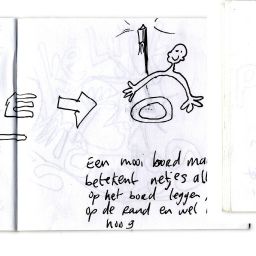 Een mooi bord ma
betekent netjes all
op het bord leggen,
op de rand en wel
hoog